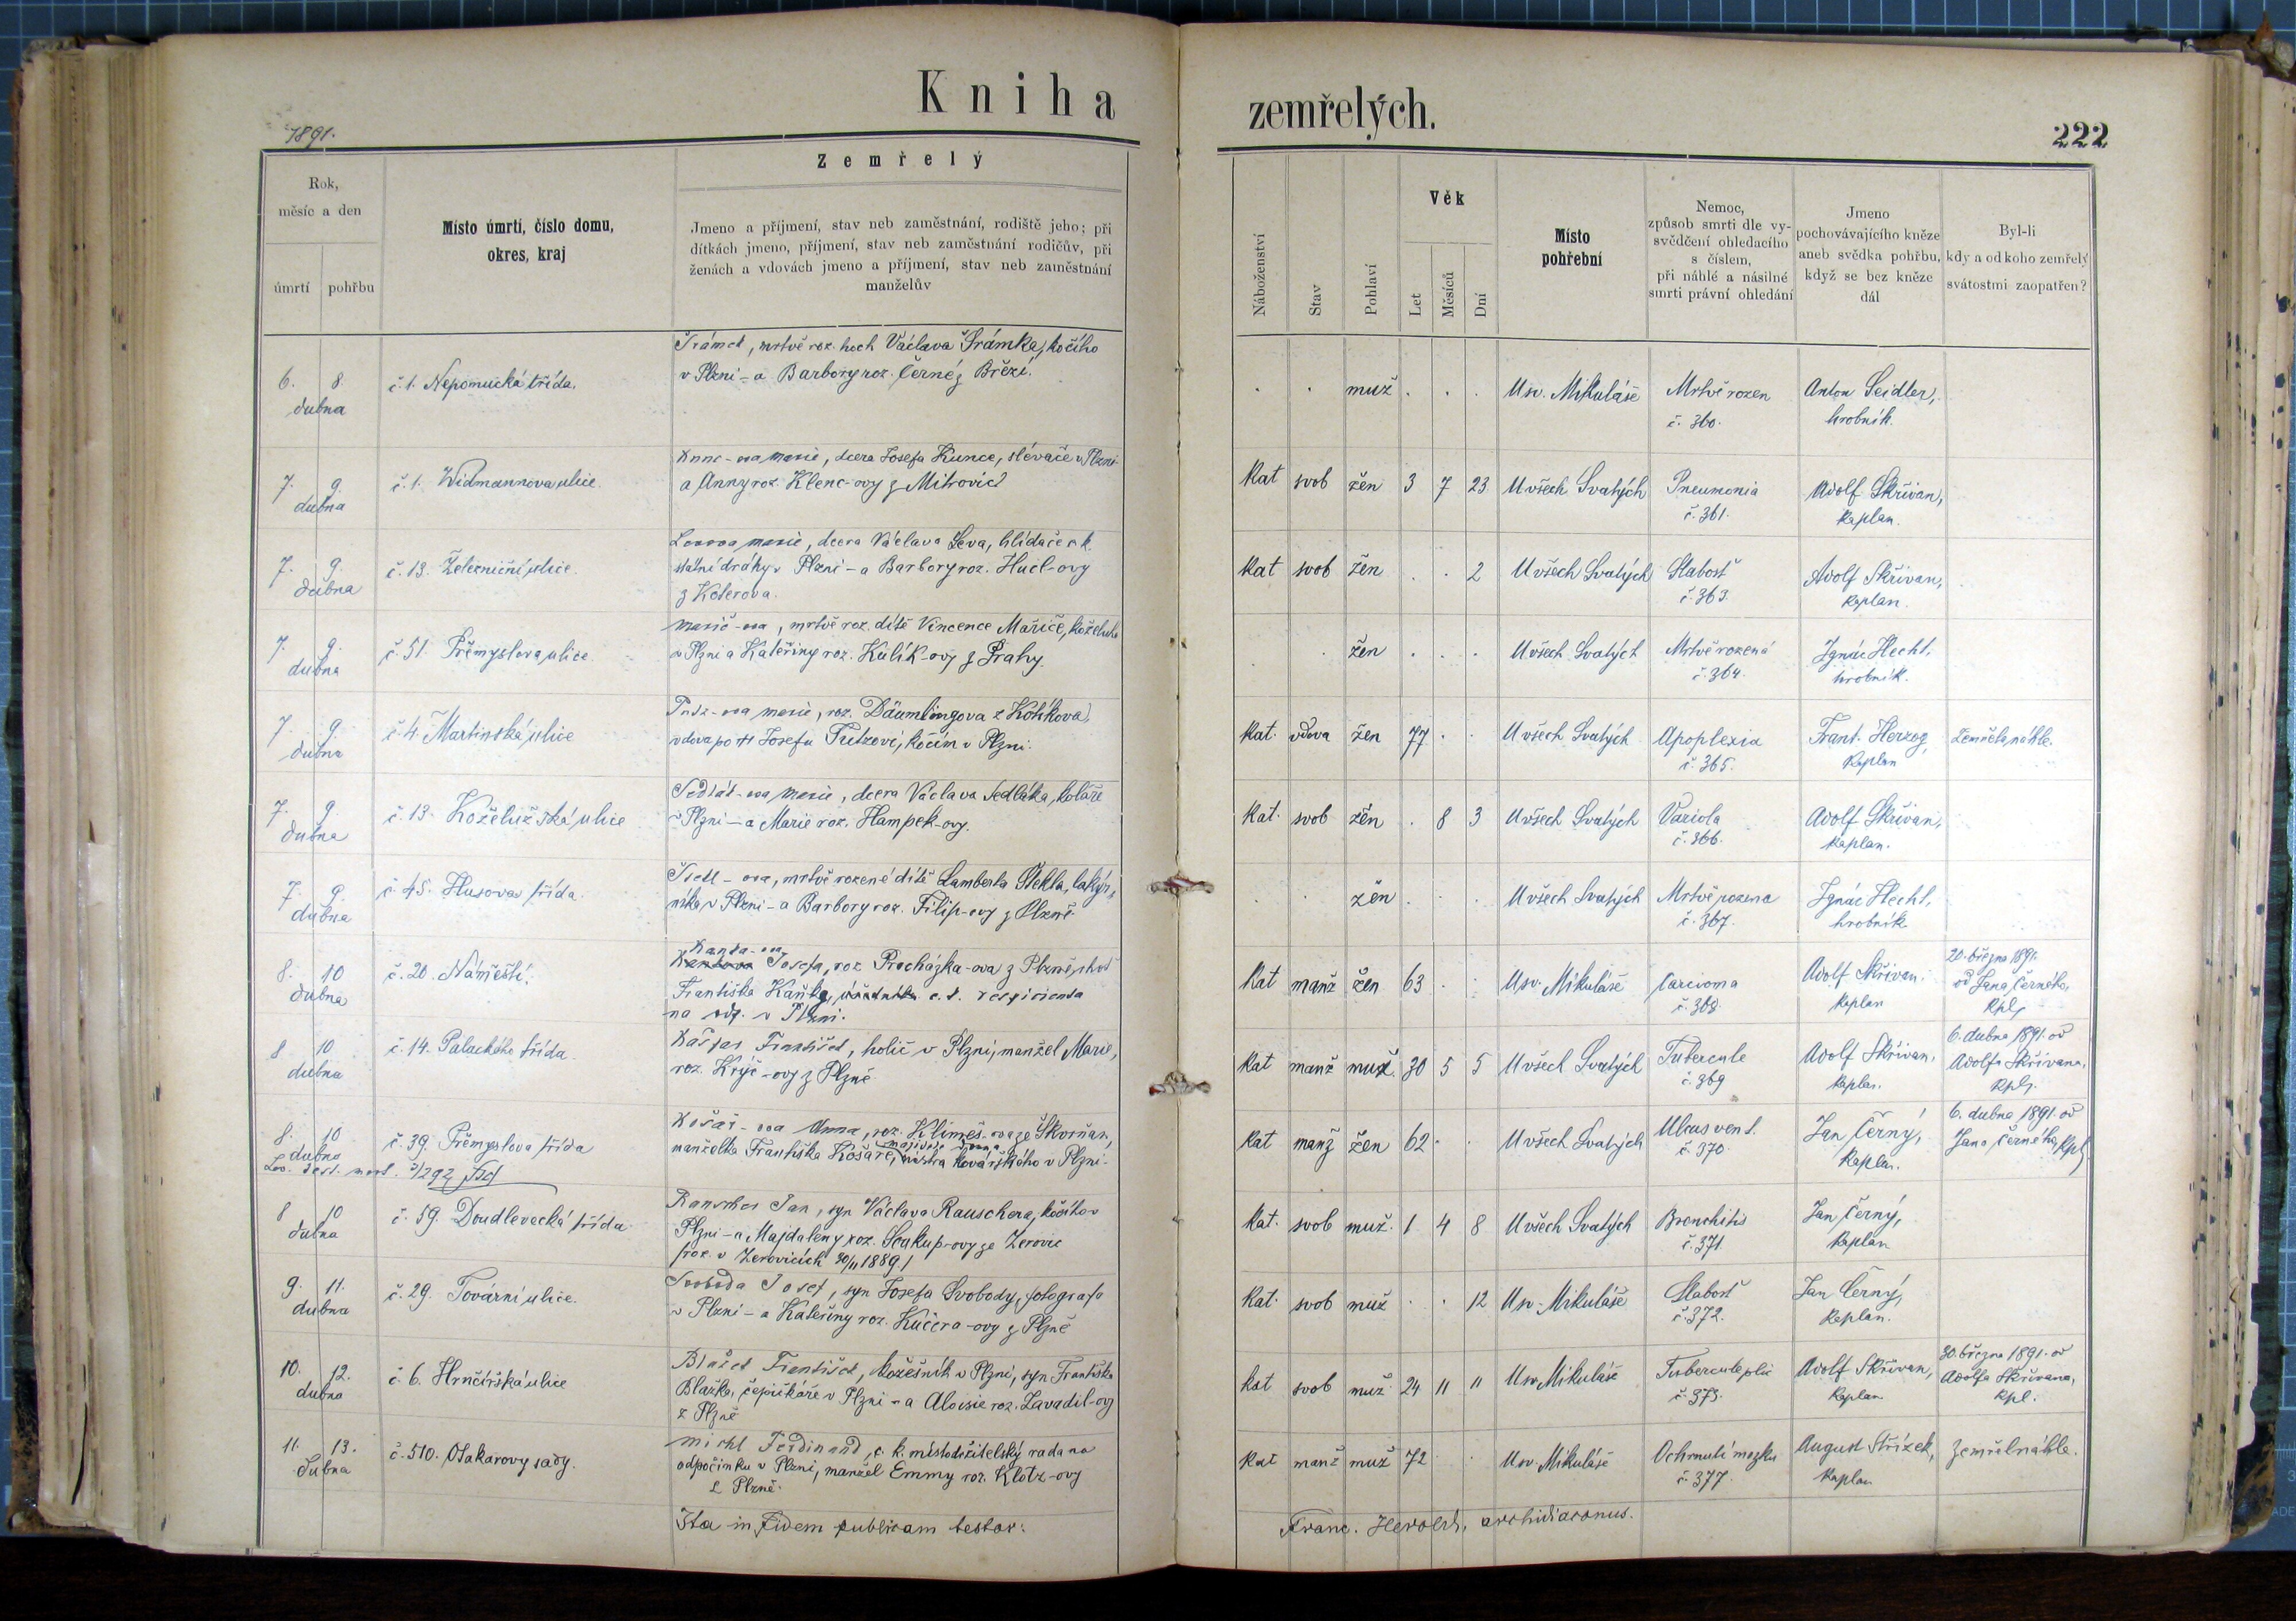 Kniha
zemřelých.
1891.
222
Zemřelý
Rok,
měsíc a den
úmrtí
pohřbu
Místo úmrtí, číslo domu,
okres, kraj
Jmeno a příjmení, stav neb zaměstnání, rodiště jeho; při
dítkách jmeno, příjmení, stav neb zaměstnání rodičův, při
ženách a vdovách jmeno a příjmení, stav neb zaměstnání
manželův
Náboženství
Stav
Pohlaví
Věk
Let
Měsíců
Dní
Místo
pohřební
Nemoc,
způsob smrti dle vy-
svědčení ohledacího
s číslem,
při náhlé a násilné
smrti právní ohledání
Jmeno
pochovávajícího kněze
aneb svědka pohřbu,
když se bez kněze
dál
Byl-li
kdy a od koho zemřelý
svátostmi zaopatřen?
6. 8.
dubna
č. 1. Nepomucká třída.
Šrámek, mrtvě roz. hoch Václava Šrámka, kočího
v Plzni - a Barbory roz. Černé z Březí.
. . muž . . .
U sv. Mikuláše
Mrtvě rozen
č. 360.
Anton Seidler,
hrobník.
7. 9.
dubna
č. 1. Widmannova ulice.
Kunc-ova Marie, dcera Josefa Kunce, slévače v Plzni
a Anny roz. Klenc-ovy z Mitrovic
Kat svob žen 3 7 23
U všech Svatých
Pneumonia
č. 361.
Adolf Skřivan,
kaplan.
7. 9.
dubna
č. 13. Železniční ulice.
Marie, dcera Václava Leva, hlídače c. k.
státní dráhy v Plzni - a Barbory roz. Hucl-ovy
z Koterova.
Kat svob žen . . 2
U všech Svatých
Slabosť
č. 363.
Adolf Skřivan,
kaplan.
7. 9.
dubna
č. 51. Přemyslova ulice.
Mařič-ova, mrtvě roz. dítě Vincence Mařiče, koželuha
v Plzni a Kateřiny roz. Kulík-ovy z Prahy.
. . žen . . .
U všech Svatých
Mrtvě rozená
č. 364.
Ignác Hecht,
hrobník.
7. 9.
dubna
č. 4. Martinská ulice
Marie, roz. Däumlingova z Kotikova,
vdova po Josefu kočím v Plzni.
Kat. vdova žen 77 . .
U všech Svatých
Apoplexia
č. 365.
Frant. Herzog,
kaplan
Zemřela náhle.
7. 9.
dubna
č. 13. Koželužská ulice
Sedlák-ova Marie, dcera Václava Sedláka, koláře
v Plzni - a Marie roz. Hampek-ovy.
Kat. svob žen . 8 3
U všech Svatých
Variola
č. 366.
Adolf Skřivan,
kaplan.
7. 9.
dubna
č. 45. Husova třída.
Štekl-ova, mrtvě rozené dítě Lamberta Štekla,
v Plzni - a Barbory roz. Filip-ovy z Plzně
. . žen . . .
U všech Svatých
Mrtvě rozena
č. 367.
Ignác Hecht,
hrobník
8. 10
dubna
č. 20. Náměstí.
Kaňka-ova
Josefa, roz. Procházka-ova z Plzně, choť
Františka Kaňky, úředníka c. k. respicienta
na odp. v Plzni.
Kat manž žen 63 . .
U sv. Mikuláše
Carcioma
č. 368
Adolf Skřivan.
kaplan
20. března 1891.
od Jana Černého,
Kpl.
8 10.
dubna
č. 14. Palackého třída.
Kašpar František, holič v Plzni, manžel Marie,
roz. Krýč-ovy z Plzně
Kat manž muž. 30 5 5
U všech Svatých
Tubercule
č. 369
Adolf Skřivan.
kaplan.
6. dubna 1891. od
Adolfa Skřivana,
Kpl.
8. 10
dubna
č. 39. Přemyslova třída
Košař-ova Anna, roz. Klimeš-ova ze Skvrňan,
manželka Františka Košaře, mistra kovářského v Plzni.
Kat manž žen 62 . .
U všech Svatých
Ulcus vent.
č. 370.
Jan Černý,
kaplan.
6. dubna 1891. od
Jana Černého, Kpl.
8 10
dubna
č. 59. Doudlevecká třída.
Rauscher Jan, syn Václava Rauschera, kočího v
Plzni - a Majdaleny roz. Soukup-ovy ze Žerovic
/roz. v Žerovicích 30/11 1889./
Kat. svob muž. 1 4 8
U všech Svatých
Bronchitis
č. 371.
Jan Černý,
kaplan
9. 11.
dubna
č. 29. Tovární ulice.
Svoboda Josef, syn Josefa Svobody, fotografa
v Plzni - a Kateřiny roz. Kučera-ovy z Plzně
Kat. svob muž . . 12
U sv. Mikuláše
Slabosť
č. 372.
Jan Černý,
kaplan.
10. 12.
dubna
č. 6. Hrnčířská ulice
Blažek František, kožešník v Plzni, syn Františka
Blažka, čepičkáře v Plzni - a Aloisie roz. Zavadil-ovy
z Plzně
Kat svob muž 24 11 11
U sv. Mikuláše
Tubercule plic
č. 373.
Adolf Skřivan,
kaplan
30. března 1891. od
Adolfa Skřivana,
kpl.
11. 13.
dubna
č. 510. Otakarovy sady.
Michl Ferdinand, c. k. místodržitelský rada na
odpočinku v Plzni, manžel Emmy roz. Klotz-ovy
z Plzně.
Kat manž muž 72 . .
U sv. Mikuláše
Ochrnutí mozku
č. 377.
August Střízek,
kaplan
Zemřel náhle.
Ita in fidem publicam testor:
Franc. Herold, archidiaconus.